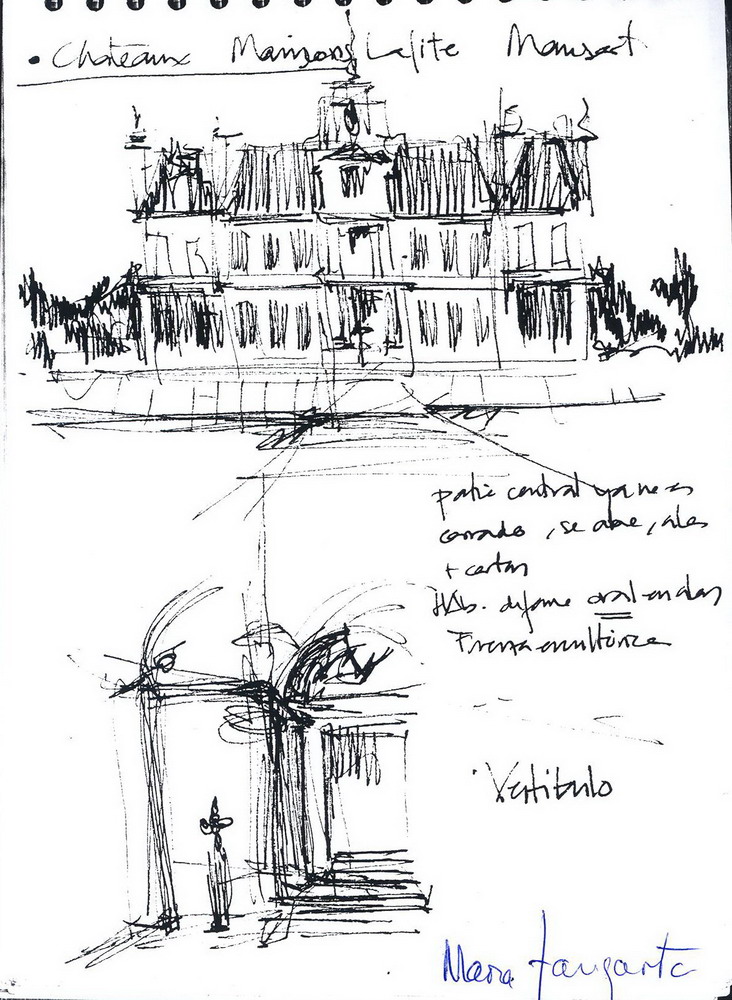 • Chateaux Maisons Lafite Mansart
patio central ya no es
cerrado, se abre, alas
+ cortas
Hab. de forma oval en alas
Fuerza escultórica
Vestibulo
Maria